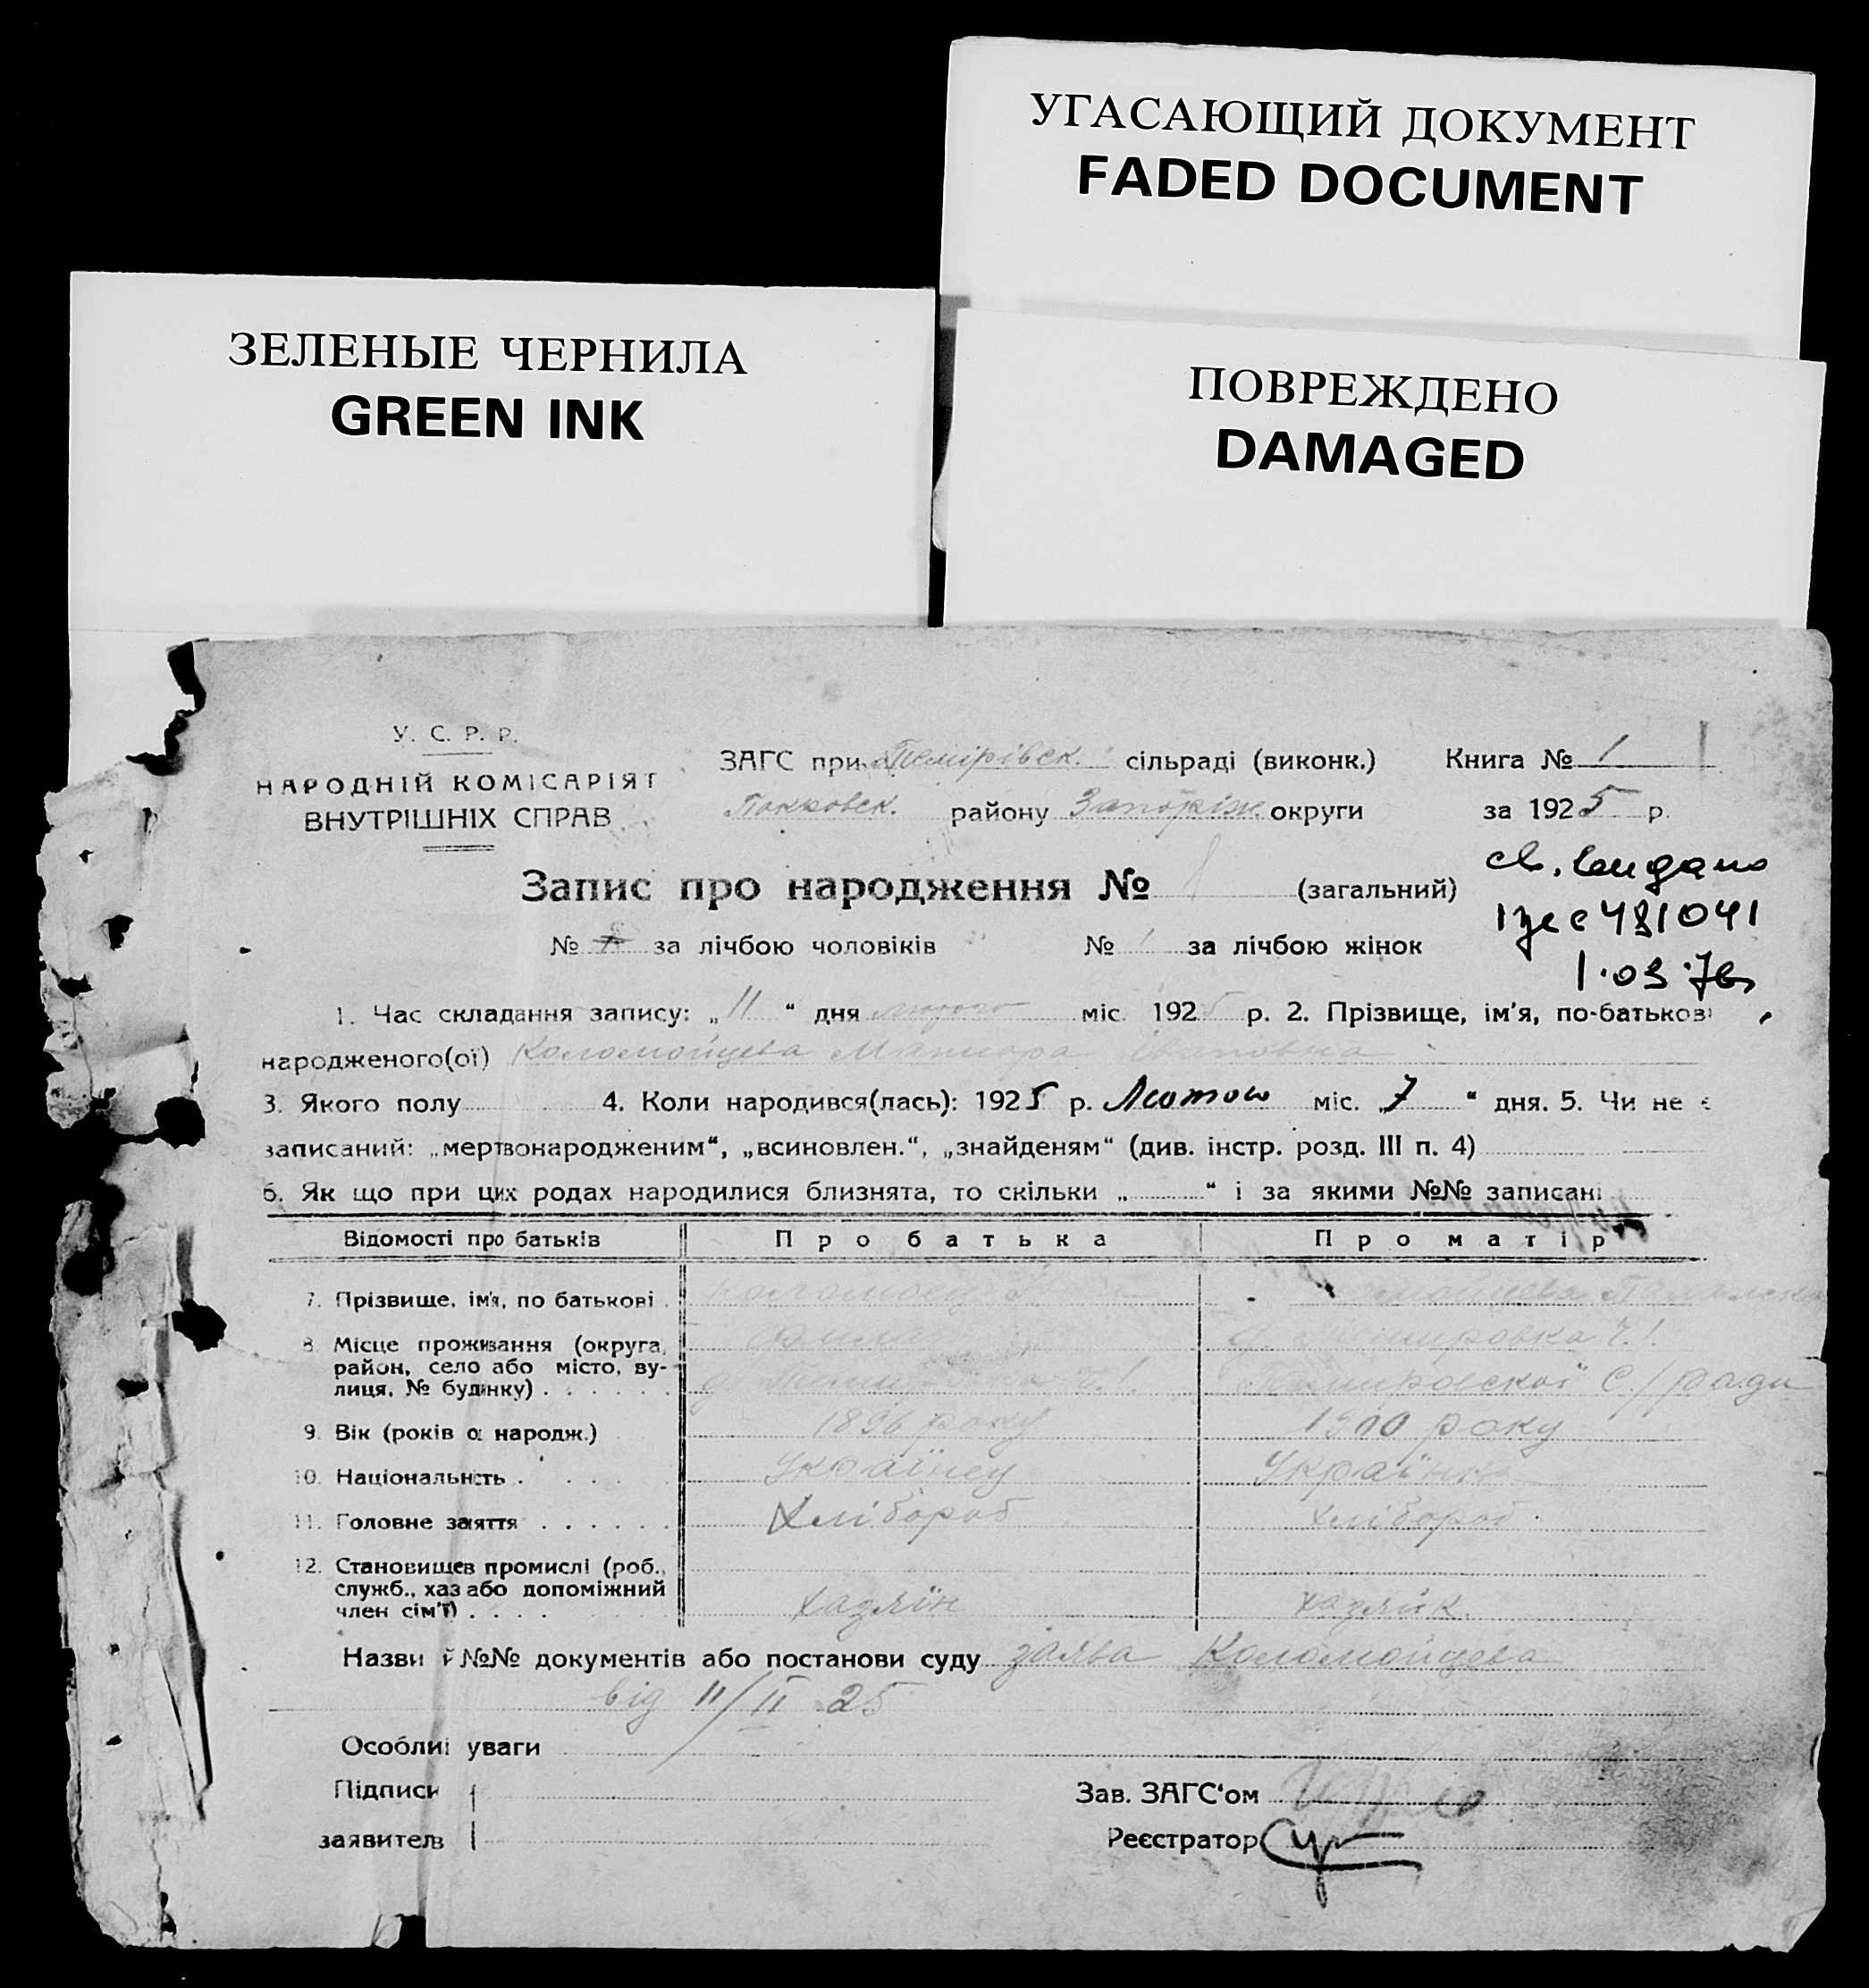 УГАСАЮЩИЙ ДОКУМЕНТ
FADED DOCUMENT
ЗЕЛЕНЫЕ ЧЕРНИЛА
GREEN INK
ПОВРЕЖДЕНО
DAMAGED
У. С. Р. Р.
НАРОДНІЙ КОМІСАРІЯТ
ВНУТРІШНІХ СПРАВ
ЗАГС при сільраді (виконк.) Книга № 1
Покровск. району Запоріж. округи за 1925 р.
Запис про народження № (загальний)
№ за лічбою чоловіків № 1 за лічбою жінок
св. видано
1.03.76
1. Час складання запису: „11“ дня лютого міс. 1925 р. 2. Прізвище, ім'я, по-батькові
народженого(ої) Коломойцева
3. Якого полу 4. Коли народився(лась): 1925 р. Лютого міс. „7“ дня. 5. Чи не є
записаний: „мертвонародженим“, „всиновлен.“, „знайденям“ (див. інстр. розд. III п. 4)
6. Як що при цих родах народилися близнята, то скільки „ “ і за якими №№ записані
Відомості про батьків Про батька Про матір
7. Прізвище, ім'я, по батькові
8. Місце проживання (округа,
район, село або місто, ву-
лиця, № будинку) . . . . . . С/ради
9. Вік (років от народж.) 1896 року 1900 року
10. Національність . . . . Українец Українка
11. Головне заняття . . . . . . Хлібороб Хлібороб
12. Становище в промислі (роб.,
служб., хаз або допоміжний
член сім'ї) . . . . Хазяїн Хазяйк.
Назви й №№ документів або постанови суду заява Коломойцева
від 11/II 25
Особливі уваги
Підписи Зав. ЗАГС'ом
заявителів Реєстратор